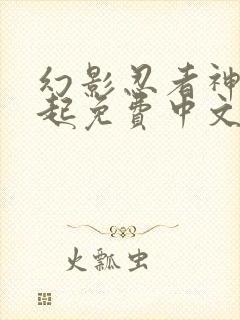 幻影忍者神
起免費中文
火瓢虫